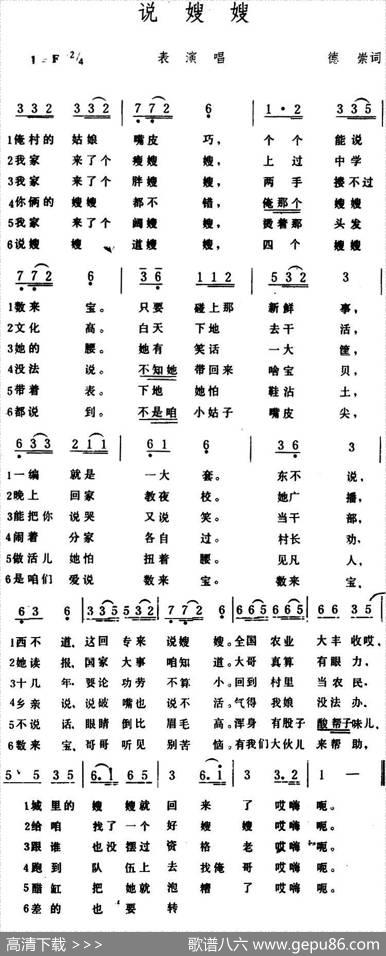 说嫂嫂
1=F 2/4 表演唱 德崇词
3 3 2 3 3 2 7 7 2 6 1·2 3 3 5
1俺村的 姑娘 嘴皮 巧， 个个 能说
2我家 来了个 瘦嫂 嫂， 上过 中学
3我家 来了个 胖嫂 嫂， 两手 搂不过
4你俩的 嫂嫂 都不 错， 俺那个 嫂嫂
5我家 来了个 阔嫂 嫂， 烫着那 头发
6说嫂 嫂 道嫂 嫂， 四个 嫂嫂
7 7 2 6 3 6 1 1 2 5 3 2 3
1数来 宝。 只要 碰上那 新鲜 事，
2文化 高。 白天 下地 去干 活，
3她的 腰。 她有 笑话 一大 筐，
4没法 说。 不知她 带回来 啥宝 贝，
5带着 表。 下地 她怕 鞋沾 土，
6都说 到。 不是咱 小姑子 嘴皮 尖，
6 3 3 2 1 1 6 1 6 3 6 3
1一编 就是 一大 套。 东不 说，
2晚上 回家 教夜 校。 她广 播，
3能把你 说哭 又说 笑。 当干 部，
4闹着 分家 各自 过。 村长 劝，
5做活儿 她怕 扭着 腰。 见凡 人，
6是咱们 爱说 数来 宝。 数来 宝，
6 3 6 3 3 5 5 3 2 7 7 2 6 3 3 5 5 3 2 6 6 3 5 1
1西不 道，这回 专来 说嫂 嫂。全国 农业 大丰 收哎，
2她读 报，国家 大事 咱知 道。大哥 真算 有眼 力，
3十几 年，要论 功劳 不算 小。回到 村里 当农 民，
4乡亲 说，说破 嘴也 说不 活。气得 我娘 没法 办，
5不说 话，眼睛 倒比 眉毛 高。浑身 有股子 酸帮子味儿，
6数来 宝，哥哥 听见 别苦 恼。有我们 大伙儿 来帮 助，
5 5 3 5 6·1 6 5 3 6·1 3 3·2 1 —
1城里的 嫂嫂就 回来 了 哎嗨 呃。
2给咱 找了一个 好嫂 嫂 哎嗨 呃。
3跟谁 也没摆过 资格 老 哎嗨 呃。
4跑到 队伍上 去找 俺哥 哎嗨 呃。
5醋缸 把她就 泡糟 了 哎嗨 呃。
6差的 也要 转
高清下载 >>> 歌谱八六 www.gepu86.com